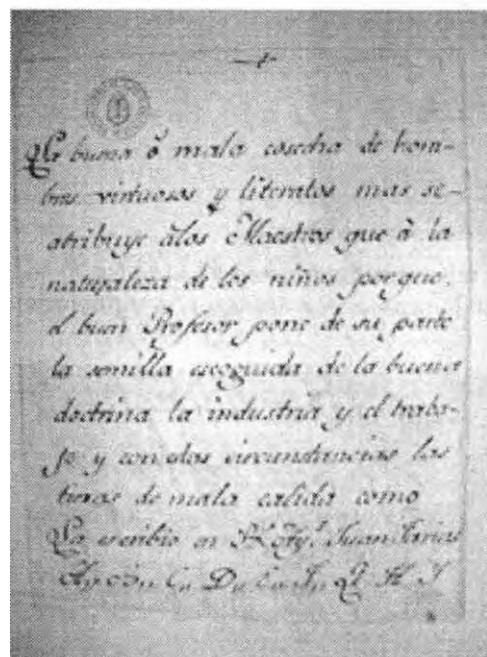 La buena ó mala cosecha de hom-
bres virtuosos y literatos mas se
atribuye álos Maestros que á la
naturaleza de los niños porque,
el buen Profesor pone de su parte
la semilla escoguida de la buena
doctrina la industria y el traba-
jo y con stas circunstancias las
tieras de mala calida como
La escribio en Juan Farias